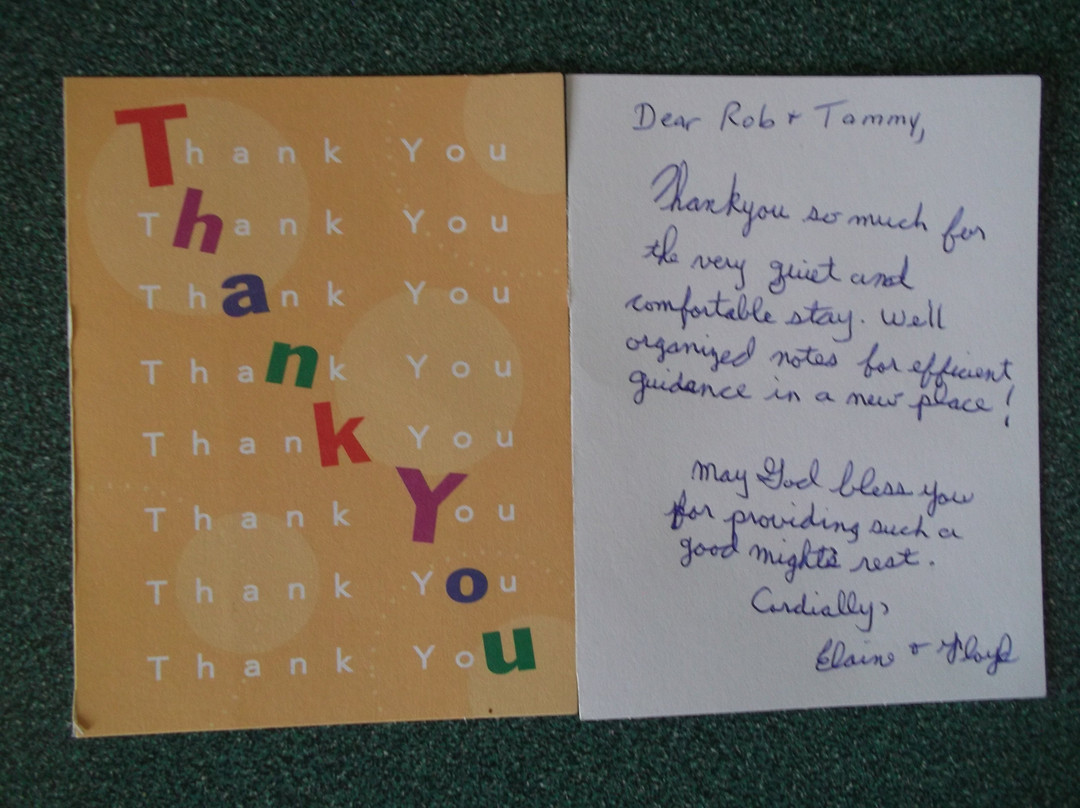 Thank You
Thank You
Thank You
Thank You
Thank You
Thank You
Thank You
Thank You
Dear Rob + Tammy,
Thankyou so much for
the very quiet and
comfortable stay. Well
organized notes for efficient
guidance in a new place!
May God bless you
for providing such a
good night's rest.
Cordially,
Elaine + Floyd